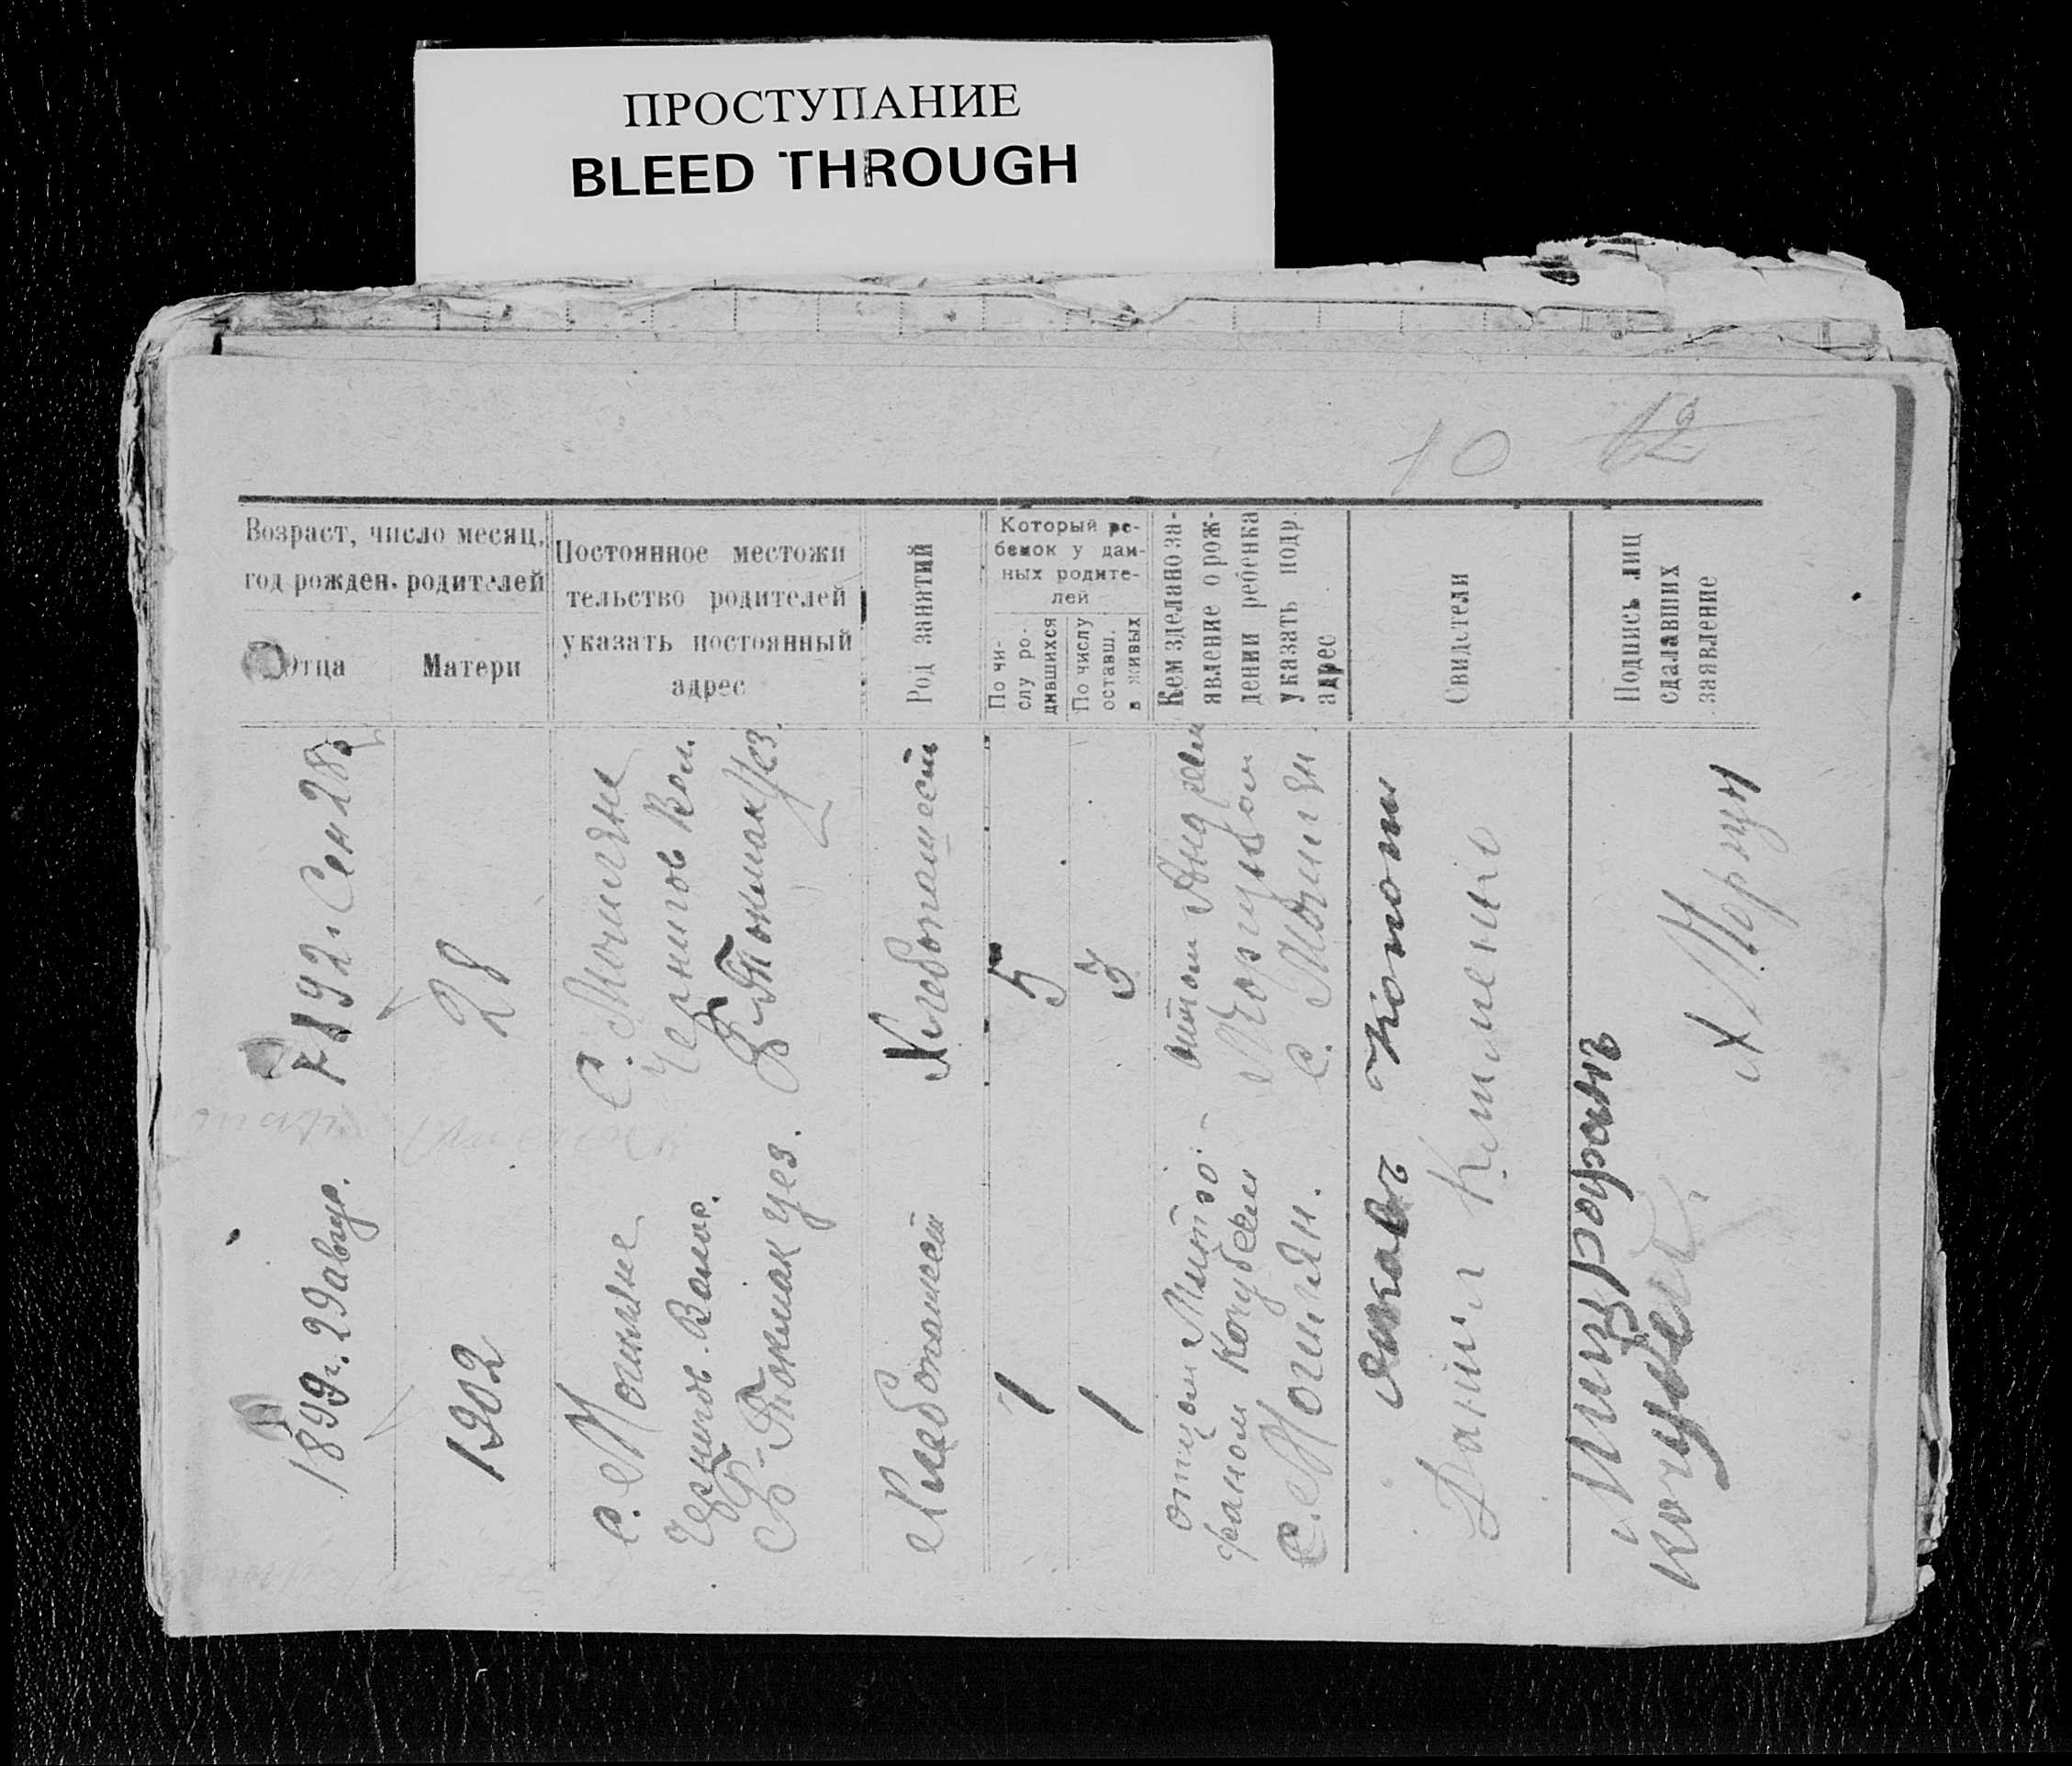 ПРОСТУПАНИЕ
BLEED THROUGH
10 12
Возраст, число месяц.
год рожден. родителей
Отца
Матери
Постоянное местожи
тельство родителей
указать постоянный
адрес
Род занятий
Который ре-
бенок у дан-
ных родите-
лей
По чи-
слу ро-
дившихся
По числу
оставш.
в живых
Кем зделано за-
явление о рож-
дении ребенка
указать подр.
адрес
Свидетели
Подпись лиц
сдалавших
заявление
1899г. 29 авгус.
1902
с. Могиляне
Чернигов. Волос.
Б-Токмак уез.
Хлебопашест
1
1
отцом Митро-
фаном Кочубеем
с. Могилян.
Яков Копот
Данил Клименко
Митрофанъ
Кочубей
1892г Сен 28
28
с. Могиляне
Чернигов Вол.
Б-Токмак Уез.
Хлебопашест
5
3
отцом Андреем
с. Могилян